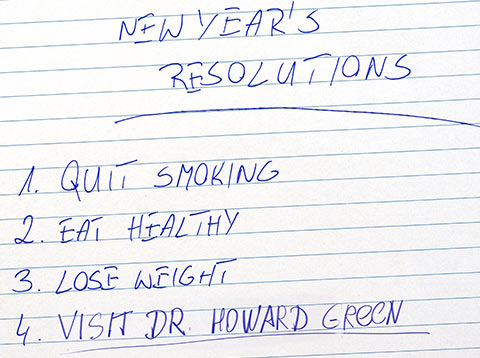 NEW YEAR'S
RESOLUTIONS
1. QUIT SMOKING
2. EAT HEALTHY
3. LOSE WEIGHT
4. VISIT DR. HOWARD GREEN